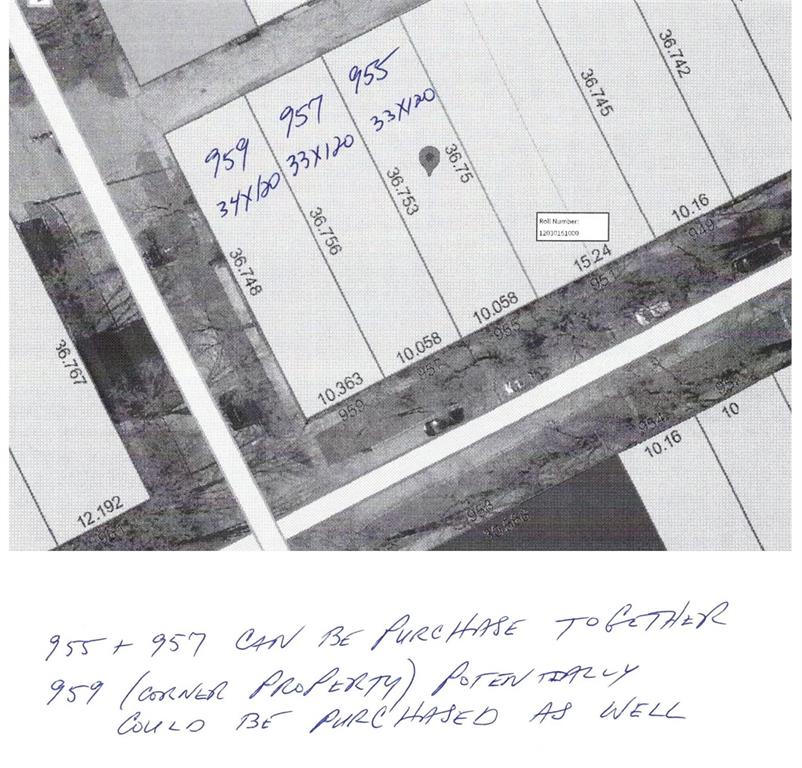 955
957
959
33X120
33X120
34X120
36.742
36.745
36.75
36.753
36.756
36.748
36.767
Roll Number:
12030161000
10.16
949
15.24
951
10.058
955
10.058
957
10.363
959
12.192
10.16
10
954
953
955 + 957 CAN BE PURCHASE TOGETHER
959 (CORNER PROPERTY) POTENTIALLY
COULD BE PURCHASED AS WELL